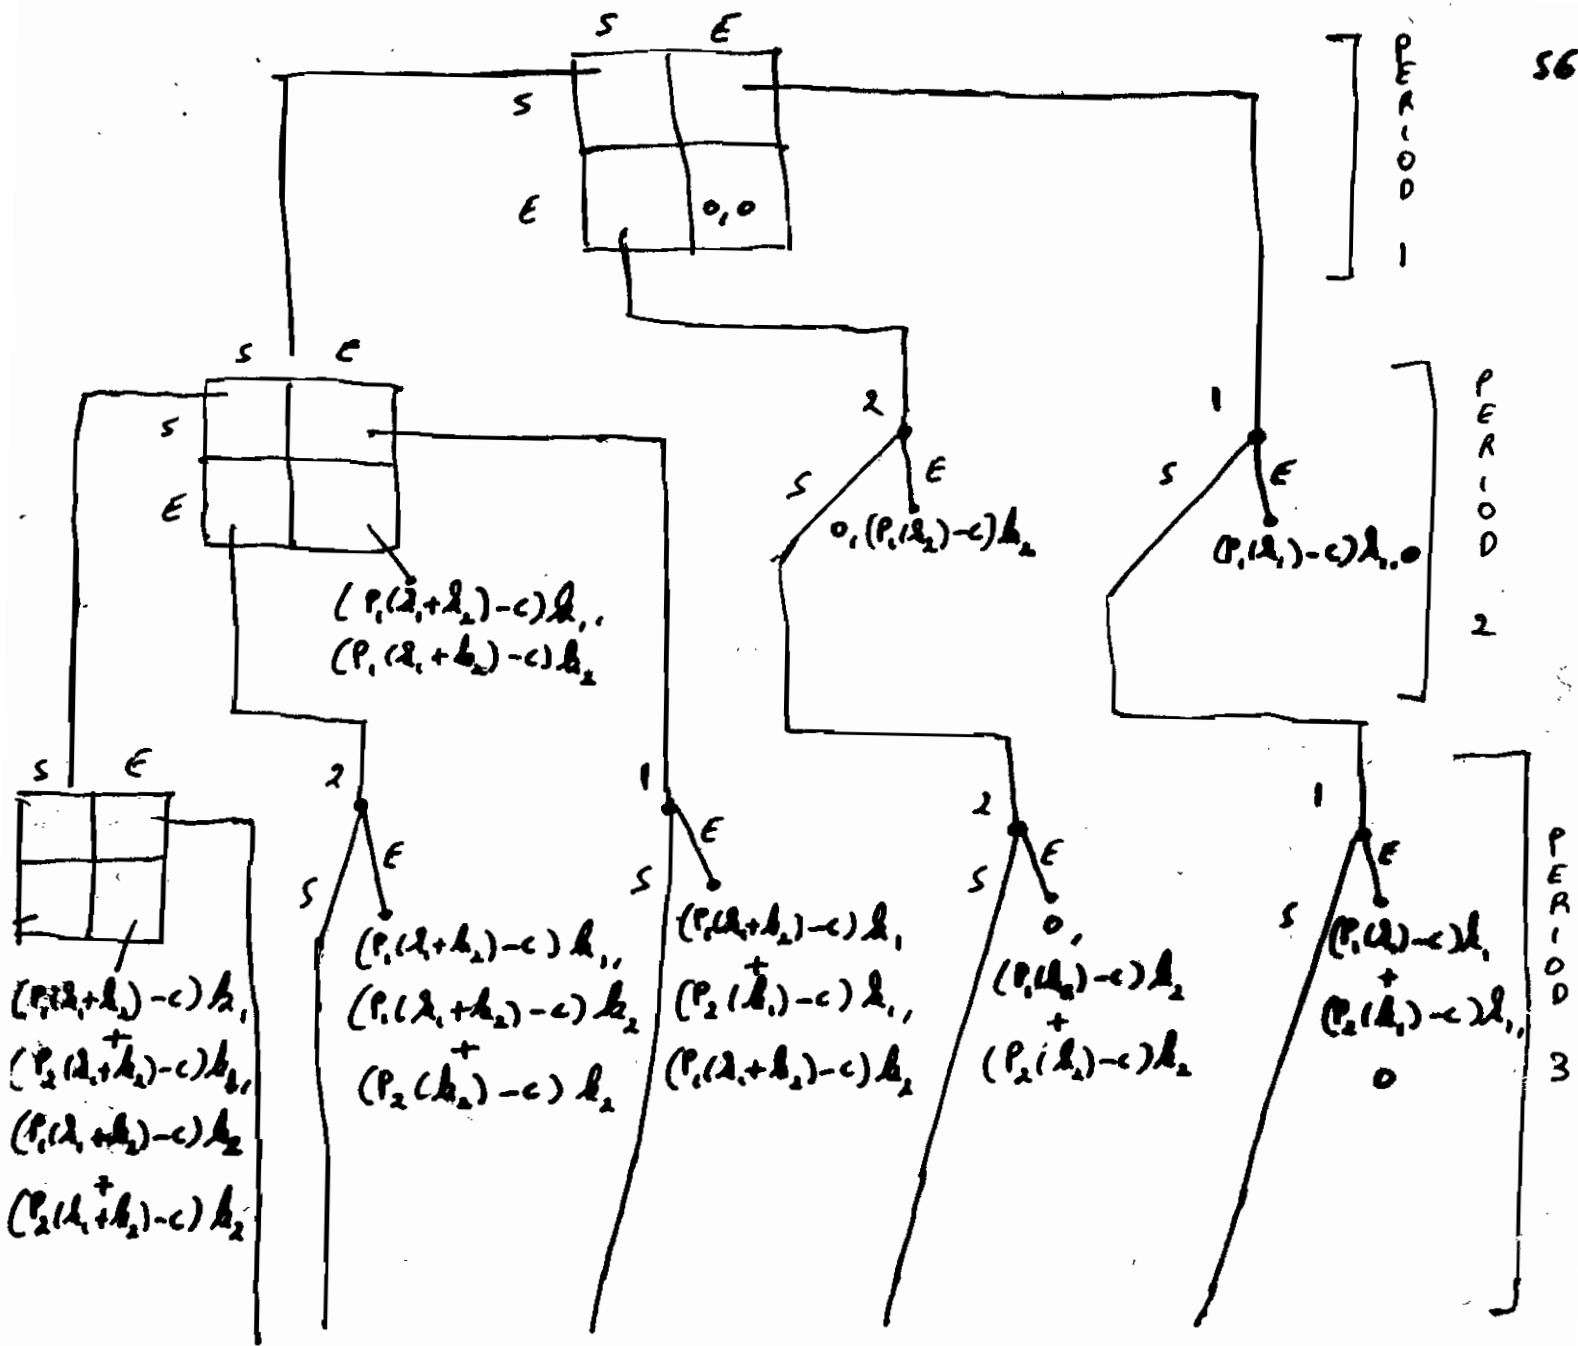 S E
S
E
0, 0
PERIOD 1
56
S E
S
E
(P₁(k₁+k₂)-c)k₁,
(P₁(k₁+k₂)-c)k₂
2
S E
0, (P₁(k₂)-c)k₂
1
S E
(P₁(k₁)-c)k₁, 0
PERIOD 2
S E
(P₁(k₁+k₂)-c)k₁
+
(P₂(k₁+k₂)-c)k₁,
(P₁(k₁+k₂)-c)k₂
+
(P₂(k₁+k₂)-c)k₂
2
S E
(P₁(k₁+k₂)-c)k₁,
(P₁(k₁+k₂)-c)k₂
+
(P₂(k₂)-c)k₂
1
S E
(P₁(k₁+k₂)-c)k₁
+
(P₂(k₁)-c)k₁,
(P₁(k₁+k₂)-c)k₂
2
S E
0,
(P₁(k₂)-c)k₂
+
(P₂(k₂)-c)k₂
1
S E
(P₁(k₁)-c)k₁
+
(P₂(k₁)-c)k₁,
0
PERIOD 3